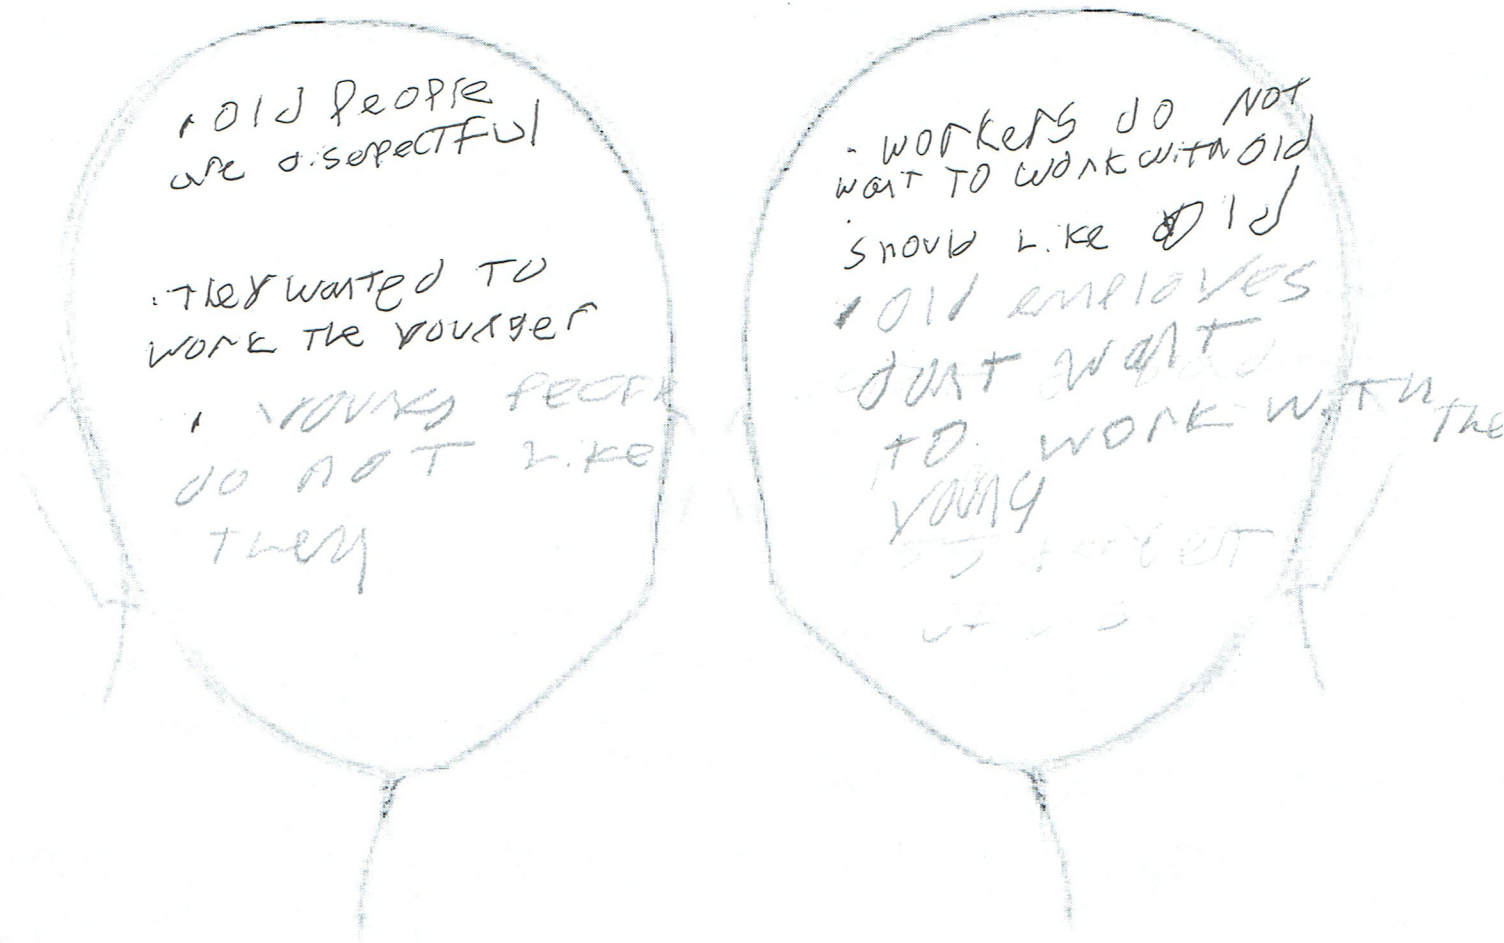 • Old People
are disepectful
• They wanted to
work the younger
• Young People
do not Like
they
• workers do Not
want To work with Old
• should Like Old
• Old employes
dont want
to work with the
young